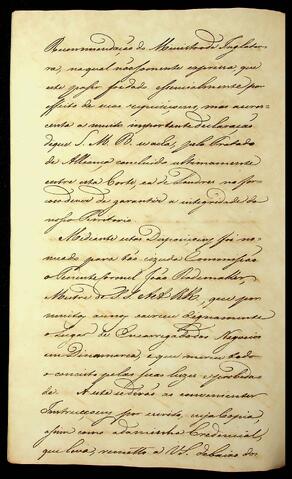 Recommendação do Ministro de Inglater-
ra, na qual não somente expressa, que
este passo foi dado essencialmente por
effeito de suas requisiçoens, mas acres-
centa a muito importante declaração
de que S. M. B. se acha, pelo Tratado
de Alliança concluido ultimamente
entre esta Corte, e a de Londres na for-
çosa de garantir a integridade do
nosso Territorio.
Mediante estas Disposiçoens, foi no-
meado para tão ezguda Commissão
o Tenente Coronel João Rademaker,
Mestre de S.S. A.A. R.R., que por
muitos annos exerceu dignamente
o Lugar de Encarregado dos Negocios
em Dinamarca, e que merece todo
o conceito pelas suas luzes e probida-
de. A este se derão as convenientes
Instrucçoens por escrito, cuja Copia,
assim como a da minha Credencial,
que leva, remetto a VS. debaixo dos